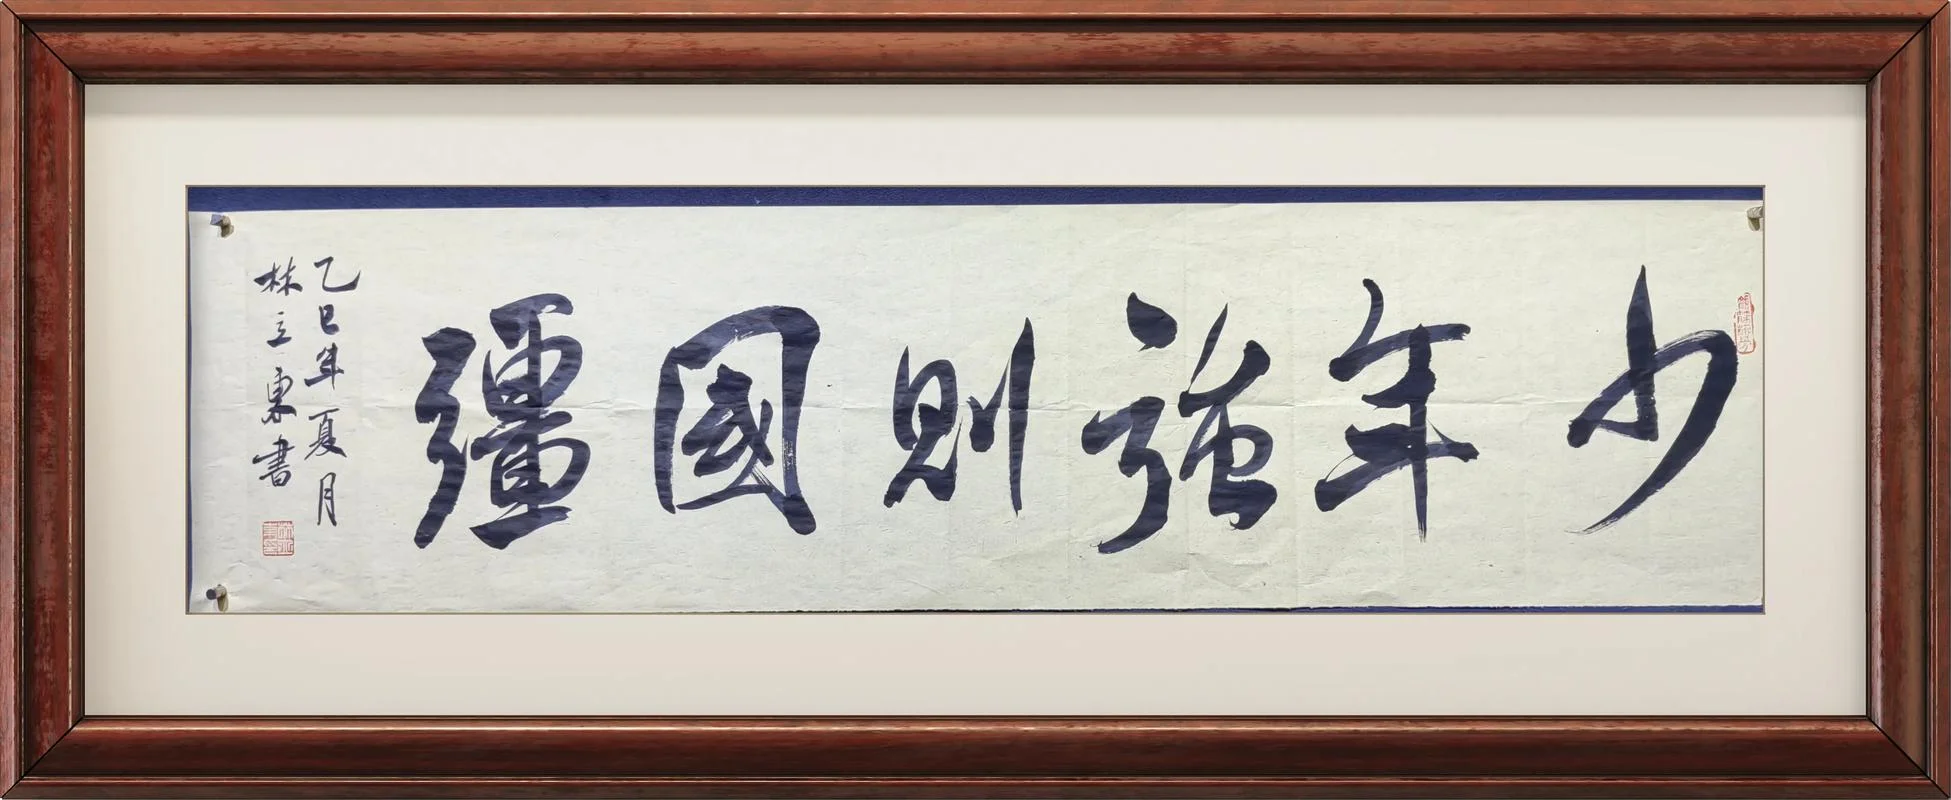 少年強則國彊
乙巳年夏月
林立東書